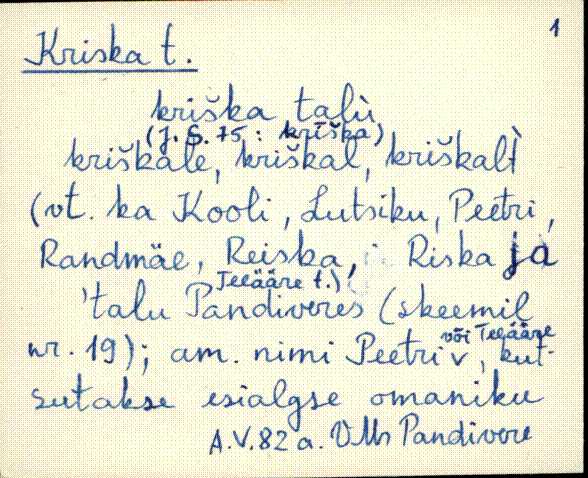 1
Kriska t.
kriška talù
(J. S. 75: krīška)
kriškale, kriškal, kriškalt̀
(vt. ka Kooli, Lutsiku, Peetri,
Randmäe, Reiska, Riska ja
Teeääre t.),
talu Pandiveres (skeemil
nr. 19); am. nimi Peetri v või Teeääre, kut-
sutakse esialgse omaniku
A.V. 82 a. VMr Pandivere